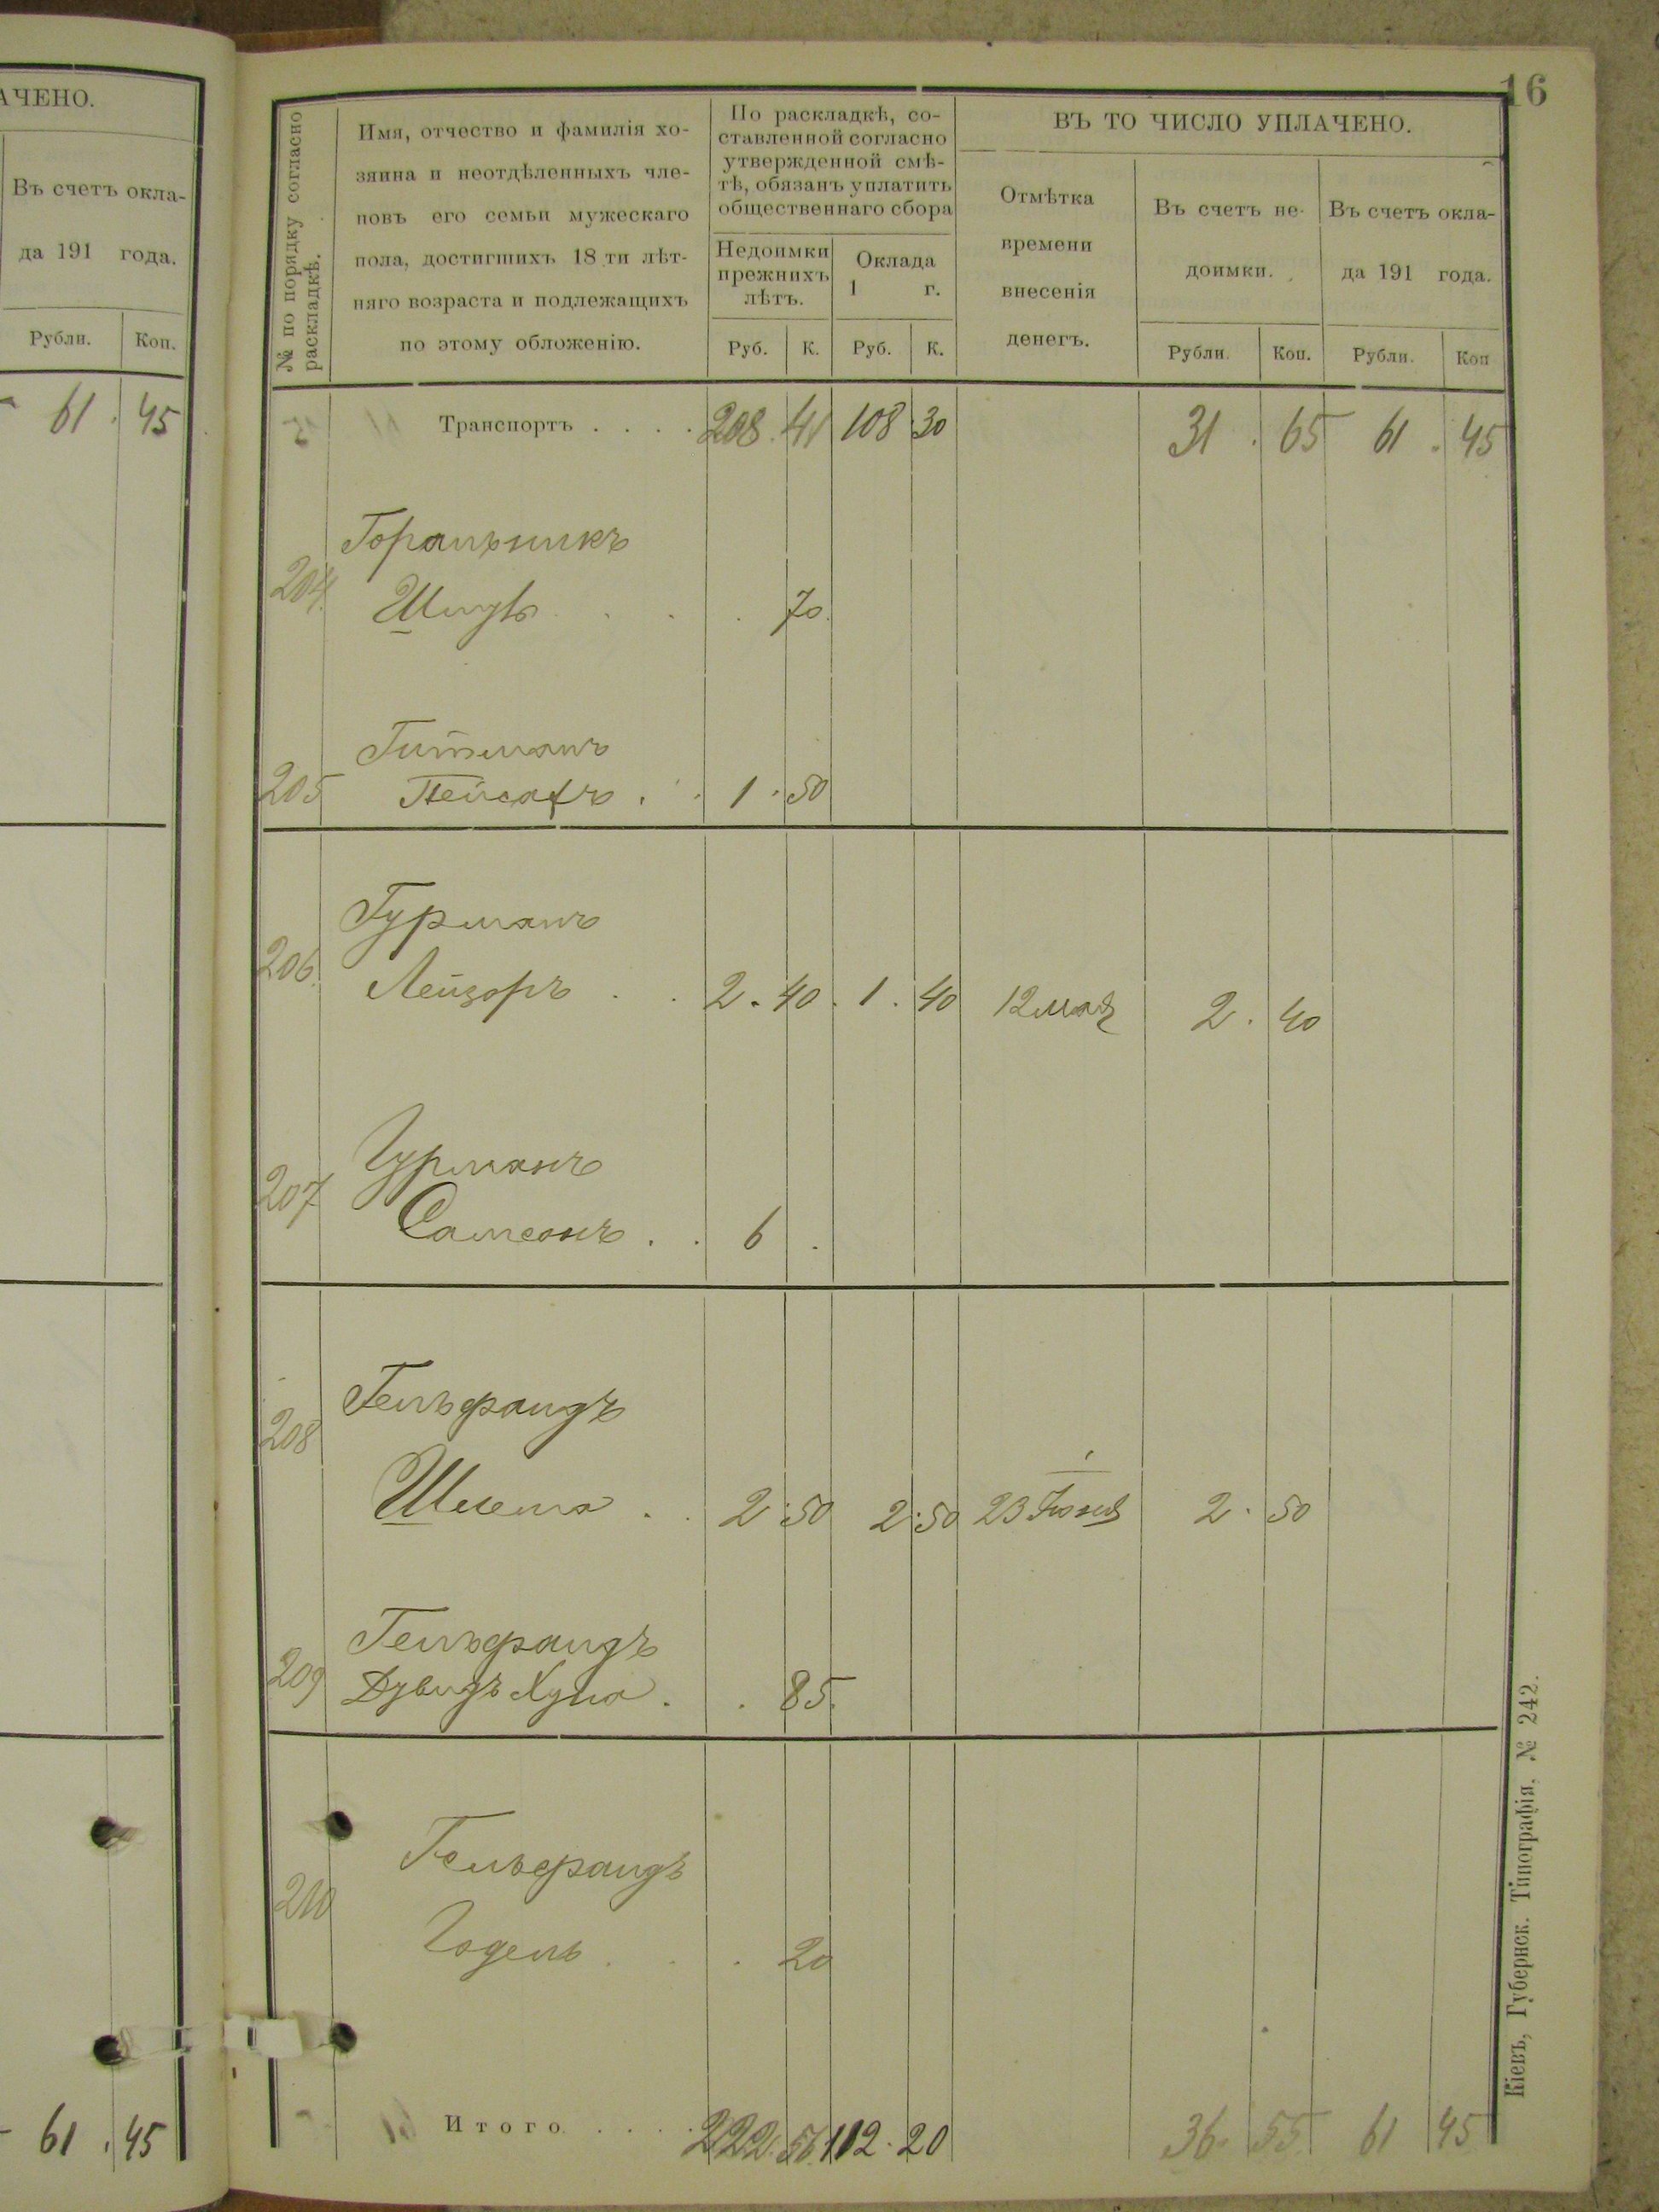 АЧЕНО.
Въ счетъ окла-
да 191 года.
Рубли. Коп.
61 . 45
61 . 45
16
№ по порядку согласно
раскладкѣ.
Имя, отчество и фамилія хо-
зяина и неотдѣленныхъ чле-
новъ его семьи мужескаго
пола, достигшихъ 18 ти лѣт-
няго возраста и подлежащихъ
по этому обложенію.
По раскладкѣ, со-
ставленной согласно
утвержденной смѣ-
тѣ, обязанъ уплатить
общественнаго сбора
Недоимки
прежнихъ
лѣтъ.
Оклада
1 г.
Руб. К. Руб. К.
ВЪ ТО ЧИСЛО УПЛАЧЕНО.
Отмѣтка
времени
внесенія
денегъ.
Въ счетъ не-
доимки.
Рубли. Коп.
Въ счетъ окла-
да 191 года.
Рубли. Коп
Транспортъ . . . . 208 . 41 108 30 31 . 65 61 . 45
204. 70.
Гитманъ
205 Пейсахъ . . 1 . 50
Гурманъ
206. Лейзоръ . . 2 . 40 . 1 . 40 12 мая 2 . 40
Гурманъ
207 Самсонъ . . 6 .
Гельфандъ
208
Шлема . . 2 . 50 2 . 50 23 Іюня 2 . 50
Гельфандъ
209 Дувидъ Хуна . . 85.
Гельфандъ
210
Годель . . . 20
Итого . . . . . 222 . 56 112 . 20 36 . 55 61 45
Кіевъ, Губернск. Типографія, № 242.